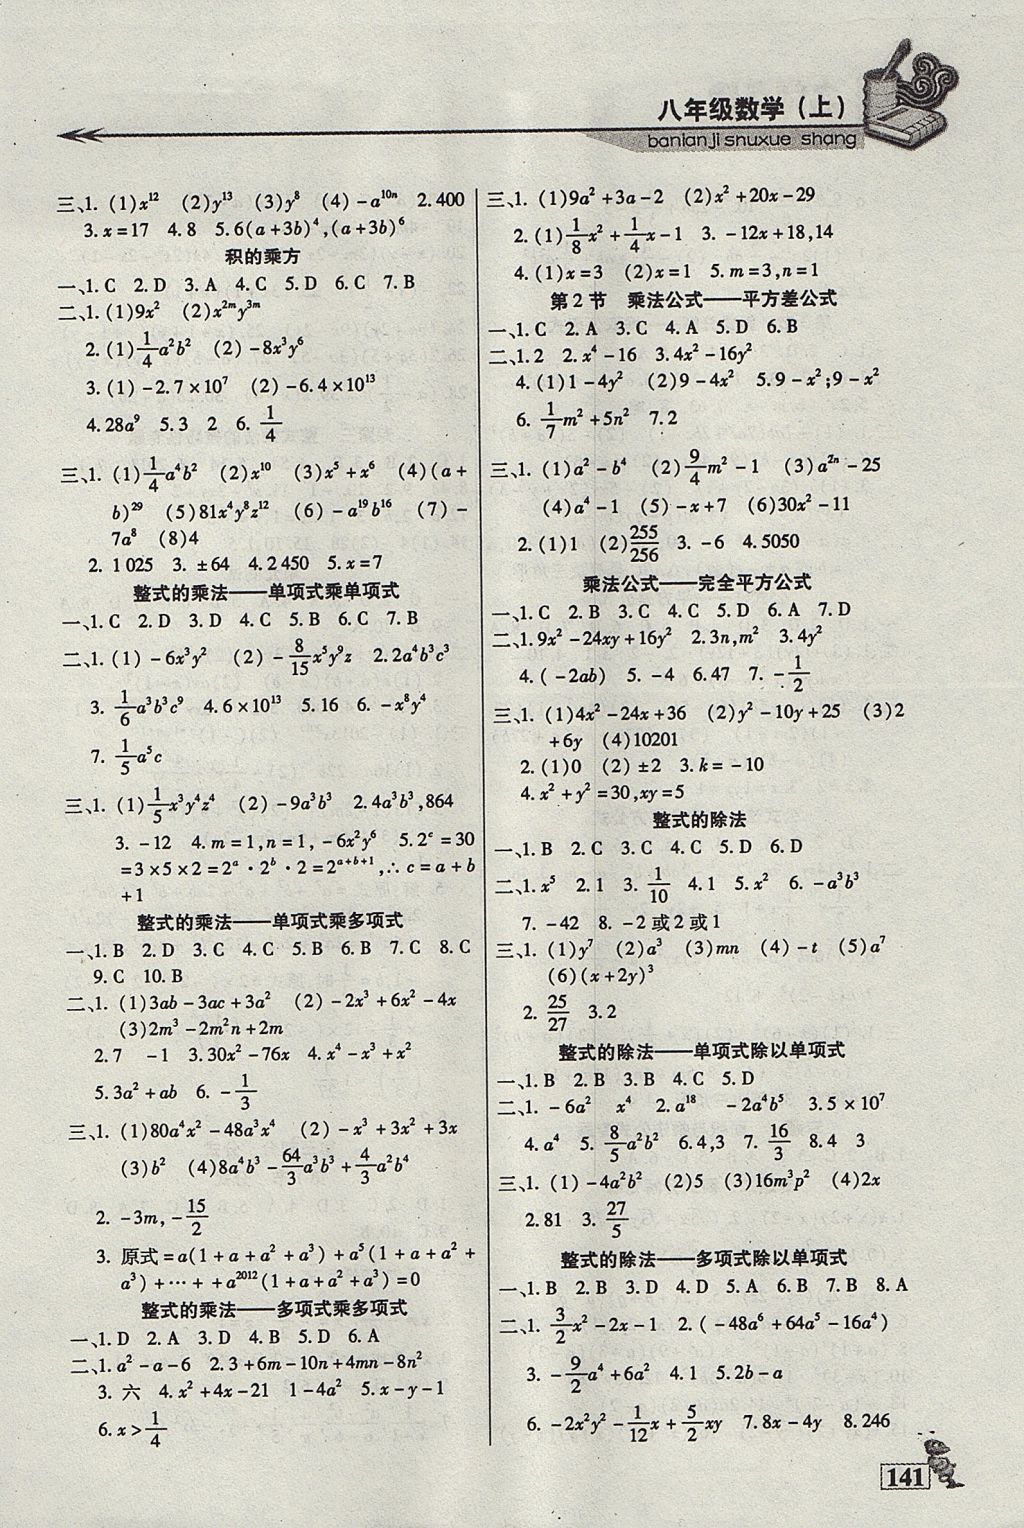 八年级数学（上）
banianjisnuxue shang
三、1. (1)x¹² (2)y¹³ (3)y⁸ (4)-a¹⁰ⁿ 2.400
3.x=17 4.8 5.6(a+3b)⁴,(a+3b)⁶
积的乘方
一、1.C 2.D 3.A 4.C 5.D 6.C 7.B
二、1.(1)9x² (2)x²ᵐy³ᵐ
2.(1)1/4a²b² (2)-8x³y⁶
3.(1)-2.7×10⁷ (2)-6.4×10¹³
4.28a⁹ 5.3 2 6.1/4
三、1.(1)1/4a⁴b² (2)x¹⁰ (3)x⁵+x⁶ (4)(a+
b)²⁹ (5)81x⁴y⁸z¹² (6)-a¹⁹b¹⁶ (7)-
7a⁸ (8)4
2.1025 3.±64 4.2450 5.x=7
整式的乘法——单项式乘单项式
一、1.C 2.D 3.D 4.C 5.B 6.C 7.B
二、1.(1)-6x³y² (2)-8/15x⁵y⁹z 2.2a⁴b³c³
3.1/6a³b³c⁹ 4.6×10¹³ 5.16 6.-x⁸y⁴
7.1/5a⁵c
三、1.(1)1/5x³y⁴z⁴ (2)-9a³b³ 2.4a³b³,864
3.-12 4.m=1,n=1,-6x²y⁶ 5.2ᶜ=30
=3×5×2=2ᵃ·2ᵇ·2=2ᵃ⁺ᵇ⁺¹,∴c=a+b
+1
整式的乘法——单项式乘多项式
一、1.B 2.D 3.C 4.C 5.B 6.B 7.C 8.C
9.C 10.B
二、1.(1)3ab-3ac+3a² (2)-2x³+6x²-4x
(3)2m³-2m²n+2m
2.7 -1 3.30x²-76x 4.x⁴-x³+x²
5.3a²+ab 6.-1/3
三、1.(1)80a⁴x²-48a³x⁴ (2)-x³+3x²+3x
(3)b² (4)8a⁴b³-64/3a³b³+4/3a²b⁴
2.-3m,-15/2
3.原式=a(1+a+a²+a³)+a⁵(1+a+a²+
a³)+…++a²⁰¹²(1+a+a²+a³)=0
整式的乘法——多项式乘多项式
一、1.D 2.A 3.D 4.B 5.D 6.A
二、1.a²-a-6 2.3+6m-10n+4mn-8n²
3.六 4.x²+4x-21 1-4a² 5.x-y-1
6.x>1/4
三、1.(1)9a²+3a-2 (2)x²+20x-29
2.(1)1/8x²+1/4x-1 3.-12x+18,14
4.(1)x=3 (2)x=1 5.m=3,n=1
第2节 乘法公式——平方差公式
一、1.C 2.A 3.C 4.A 5.D 6.B
二、1.2 2.x⁴-16 3.4x²-16y²
4.(1)1-4y² (2)9-4x² 5.9-x²;9-x²
6.1/7m²+5n² 7.2
三、1.(1)a²-b⁴ (2)9/4m²-1 (3)a²ⁿ-25
(4)a⁴-1 (5)-x+7 (6)30x²-11
2.(1)1 (2)255/256 3.-6 4.5050
乘法公式——完全平方公式
一、1.C 2.B 3.C 4.C 5.D 6.A 7.D
二、1.9x²-24xy+16y² 2.3n,m² 3.4y²
4.(-2ab) 5.-4 6.47 7.-1/2
三、1.(1)4x²-24x+36 (2)y²-10y+25 (3)2
+6y (4)10201
2.(1)0 (2)±2 3.k=-10
4.x²+y²=30,xy=5
整式的除法
一、1.B 2.C 3.C 4.C 5.D 6.D
二、1.x⁵ 2.1 3.1/10 4.1 5.x² 6.-a³b³
7.-42 8.-2或2或1
三、1.(1)y⁷ (2)a³ (3)mn (4)-t (5)a⁷
(6)(x+2y)³
2.25/27 3.2
整式的除法——单项式除以单项式
一、1.B 2.B 3.B 4.C 5.D
二、1.-6a² x⁴ 2.a¹⁸ -2a⁴b⁵ 3.5×10⁷
4.a⁴ 5.8/5a²b² 6.4,3 7.16/3 8.4 3
三、1.(1)-4a²b² (2)5 (3)16m³p² (4)2x
2.81 3.27/5
整式的除法——多项式除以单项式
一、1.B 2.B 3.D 4.D 5.A 6.B 7.B 8.A
二、1.3/2x²-2x-1 2.(-48a⁶+64a⁵-16a⁴)
3.-9/2a⁴+6a² 4.1 5.2b-a
6.-2x²y²-1/12x+5/2xy 7.8x-4y 8.246
141